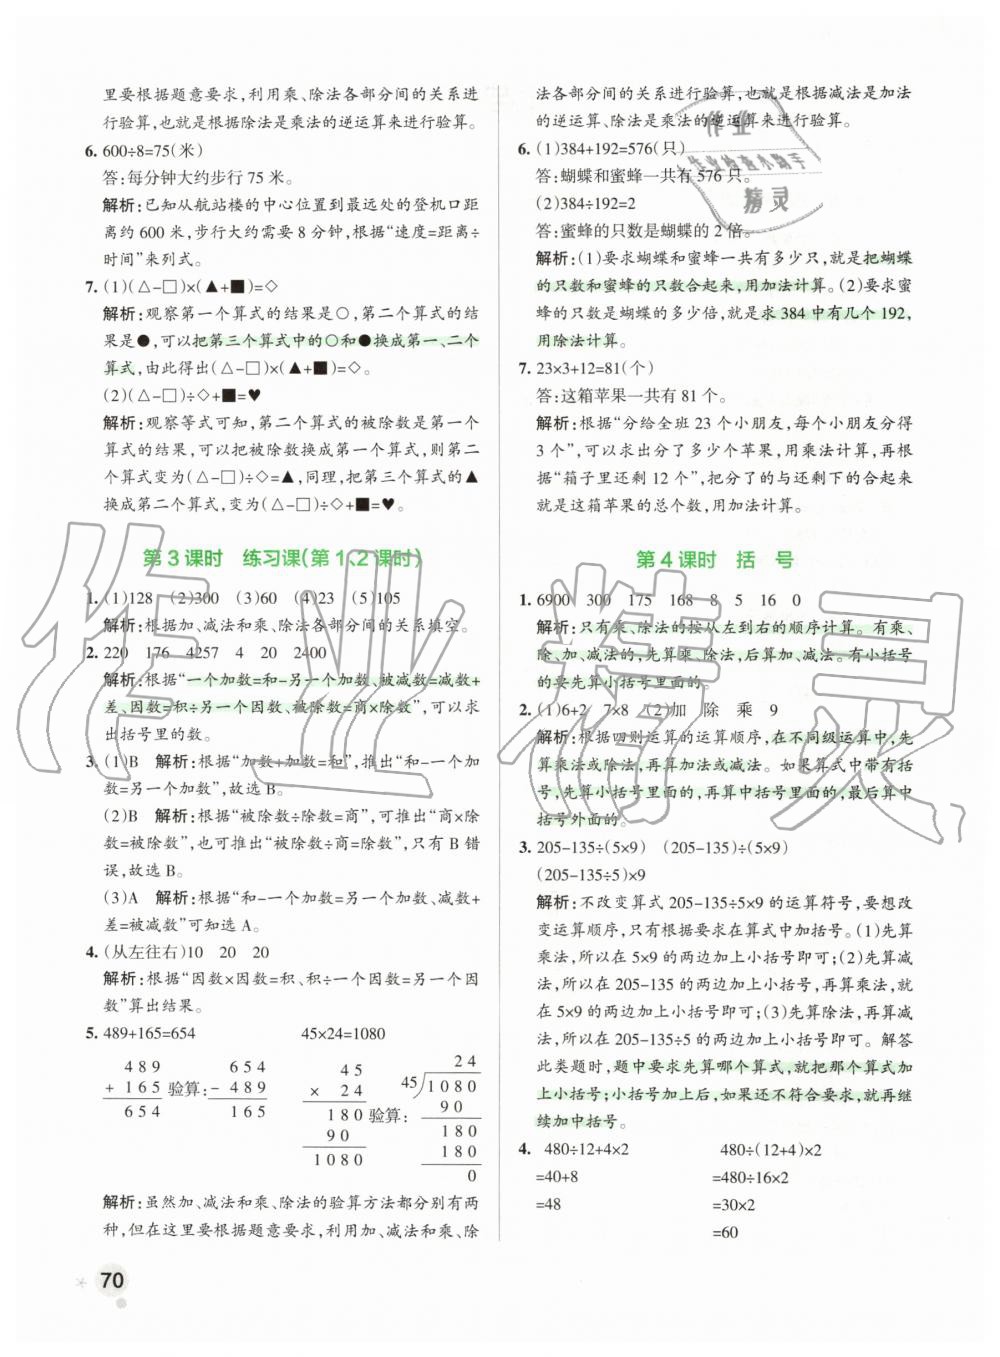 里要根据题意要求,利用乘、除法各部分间的关系进
行验算,也就是根据除法是乘法的逆运算来进行验算。
6. 600÷8=75(米)
答:每分钟大约步行 75 米。
解析:已知从航站楼的中心位置到最远处的登机口距
离约 600 米,步行大约需要 8 分钟,根据“速度=距离÷
时间”来列式。
7. (1)(△-□)×(▲+■)=◇
解析:观察第一个算式的结果是○,第二个算式的结
果是●,可以把第三个算式中的○和●换成第一、二个
算式,由此得出(△-□)×(▲+■)=◇。
(2)(△-□)÷◇+■=♥
解析:观察等式可知,第二个算式的被除数是第一个
算式的结果,可以把被除数换成第一个算式,则第二
个算式变为(△-□)÷◇=▲,同理,把第三个算式的▲
换成第二个算式,变为(△-□)÷◇+■=♥。
第 3 课时 练习课(第 1、2 课时)
1. (1)128 (2)300 (3)60 (4)23 (5)105
解析:根据加、减法和乘、除法各部分间的关系填空。
2. 220 176 4257 4 20 2400
解析:根据“一个加数=和-另一个加数、被减数=减数+
差、因数=积÷另一个因数、被除数=商×除数”,可以求
出括号里的数。
3. (1)B 解析:根据“加数+加数=和”,推出“和-一个加
数=另一个加数”,故选 B。
(2)B 解析:根据“被除数÷除数=商”,可推出“商×除
数=被除数”,也可推出“被除数÷商=除数”,只有 B 错
误,故选 B。
(3)A 解析:根据“和-一个加数=另一个加数、减数+
差=被减数”可知选 A。
4. (从左往右)10 20 20
解析:根据“因数×因数=积、积÷一个因数=另一个因
数”算出结果。
5. 489+165=654 45×24=1080
489
+ 165
654
验算:
654
- 489
165
45
× 24
180
90
1080
验算:
24
45
1080
90
180
180
0
解析:虽然加、减法和乘、除法的验算方法都分别有两
种,但在这里要根据题意要求,利用加、减法和乘、除
法各部分间的关系进行验算,也就是根据减法是加法
的逆运算、除法是乘法的逆运算来进行验算。
6. (1)384+192=576(只)
答:蝴蝶和蜜蜂一共有 576 只。
(2)384÷192=2
答:蜜蜂的只数是蝴蝶的 2 倍。
解析:(1)要求蝴蝶和蜜蜂一共有多少只,就是把蝴蝶
的只数和蜜蜂的只数合起来,用加法计算。(2)要求蜜
蜂的只数是蝴蝶的多少倍,就是求 384 中有几个 192,
用除法计算。
7. 23×3+12=81(个)
答:这箱苹果一共有 81 个。
解析:根据“分给全班 23 个小朋友,每个小朋友分得
3 个”,可以求出分了多少个苹果,用乘法计算,再根
据“箱子里还剩 12 个”,把分了的与还剩下的合起来
就是这箱苹果的总个数,用加法计算。
第 4 课时 括 号
1. 6900 300 175 168 8 5 16 0
解析:只有乘、除法的按从左到右的顺序计算。有乘、
除、加、减法的,先算乘、除法,后算加、减法。有小括号
的要先算小括号里面的。
2. (1)6+2 7×8 (2)加 除 乘 9
解析:根据四则运算的运算顺序,在不同级运算中,先
算乘法或除法,再算加法或减法。如果算式中带有括
号,先算小括号里面的,再算中括号里面的,最后算中
括号外面的。
3. 205-135÷(5×9) (205-135)÷(5×9)
(205-135÷5)×9
解析:不改变算式 205-135÷5×9 的运算符号,要想改
变运算顺序,只有根据要求在算式中加括号。(1)先算
乘法,所以在 5×9 的两边加上小括号即可;(2)先算减
法,所以在 205-135 的两边加上小括号,再算乘法,在
5×9 的两边加上小括号即可;(3)先算除法,再算减
法,所以在 205-135÷5 的两边加上小括号即可。解答
此类题时,题中要求先算哪个算式,就把那个算式加
上小括号;小括号加上后,如果还不符合要求,就再继
续加中括号。
4. 480÷12+4×2 480÷(12+4)×2
=40+8 =480÷16×2
=48 =30×2
=60
70
作业
作业检查小助手
精灵
作业精灵